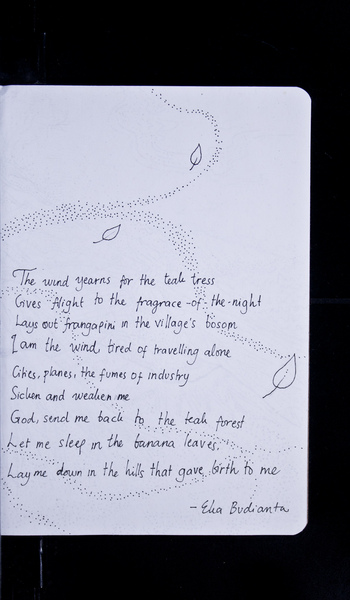 The wind yearns for the teak tress
Gives flight to the fragrace-of-the-night
Lays out frangapini in the village's bosom
I am the wind, tired of travelling alone
Cities, planes, the fumes of industry
Sicken and weaken me
God, send me back to the teak forest
Let me sleep in the banana leaves.
Lay me down in the hills that gave birth to me
- Eka Budianta